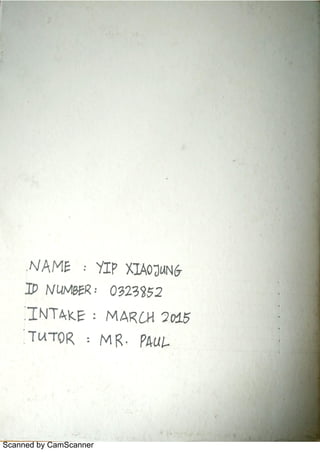 NAME : YIP XIAOJUNG
ID NUMBER: 0323852
INTAKE : MARCH 2015
TUTOR : MR. PAUL
Scanned by CamScanner